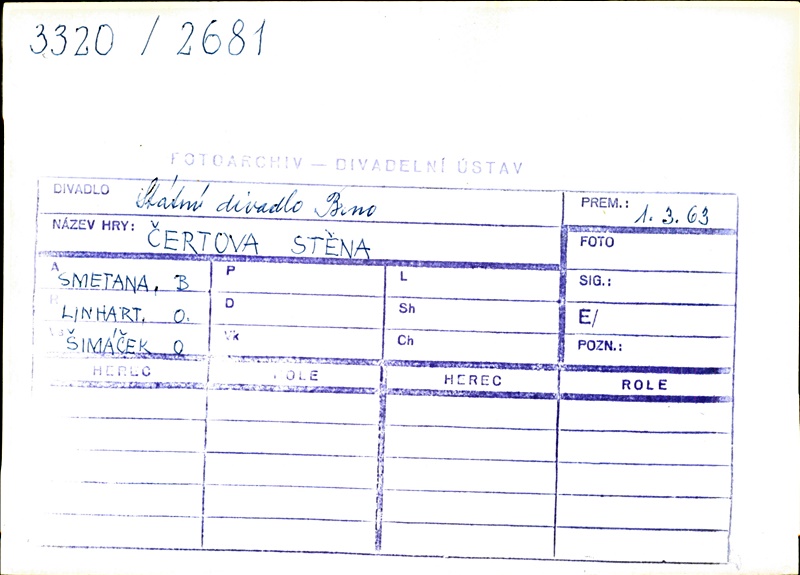 3320 / 2681
FOTOARCHIV — DIVADELNÍ ÚSTAV
DIVADLO Státní divadlo Brno
PREM.: 1. 3. 63
NÁZEV HRY: ČERTOVA STĚNA
FOTO
A SMETANA, B
P
L
SIG.:
R LINHART, O.
D
Sh
E/
ŠIMÁČEK O
Vk
Ch
POZN.:
HEREC ROLE HEREC ROLE